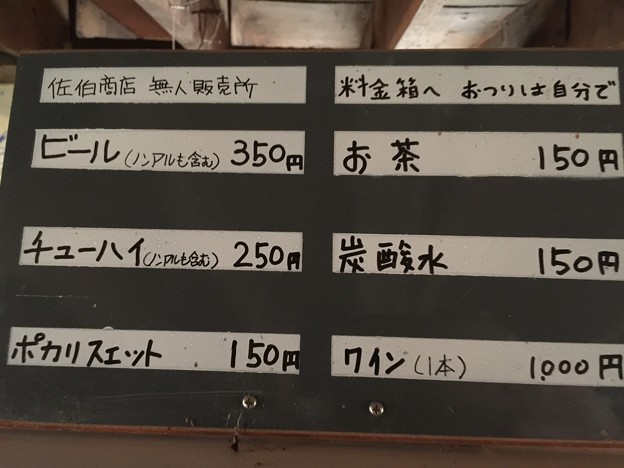 佐伯商店 無人販売所
ビール(ノンアルも含む) 350円
チューハイ(ノンアルも含む) 250円
ポカリスエット 150円
料金箱へ おつりは自分で
お茶 150円
炭酸水 150円
ワイン(1本) 1.000円